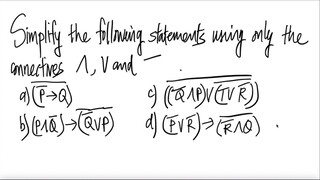 Simplify the following statements using only the
connectives ∧, ∨ and ‾.
a) (P̅→Q) c) ((Q̅∧P)∨(I∨R̅))
b) (P∧Q̅)→(Q̅∨P) d) (P̅∨R̅)→(R̅∧Q)